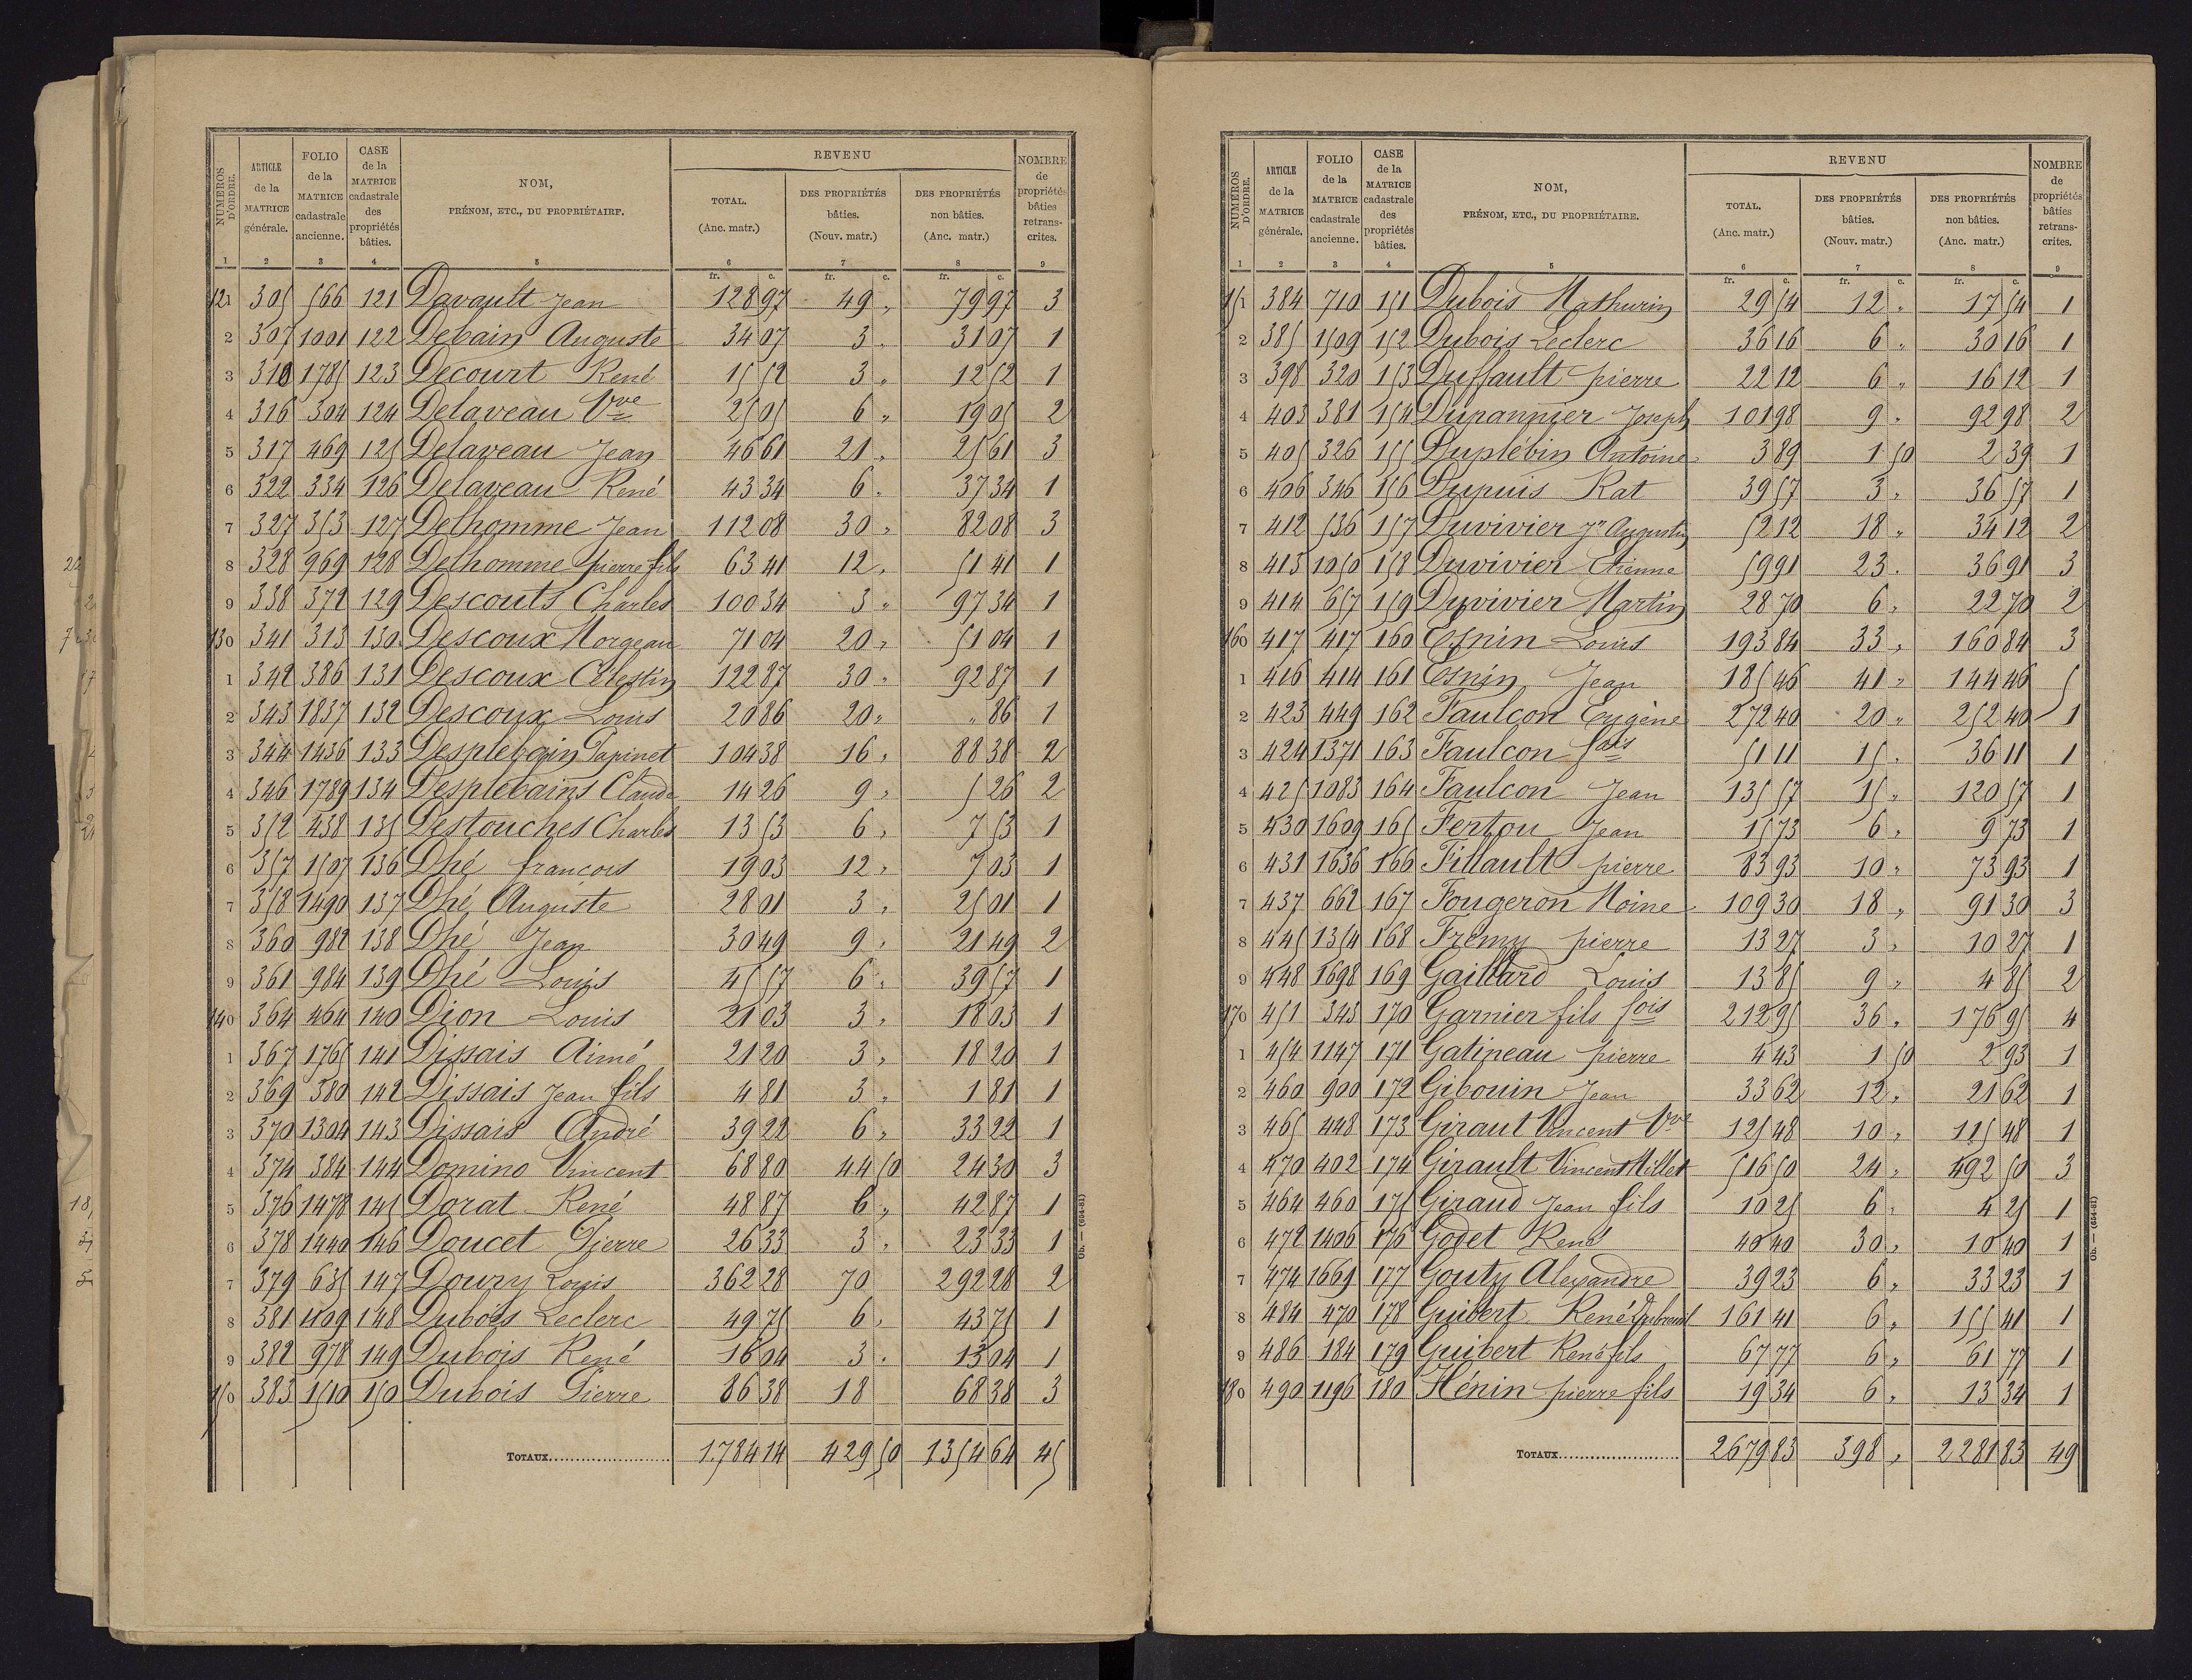 NUMÉROS D'ORDRE. | ARTICLE de la MATRICE générale. | FOLIO de la MATRICE cadastrale ancienne. | CASE de la MATRICE cadastrale des propriétés bâties. | NOM, PRÉNOM, ETC., DU PROPRIÉTAIRE. | REVENU TOTAL. (Anc. matr.) | DES PROPRIÉTÉS bâties. (Nouv. matr.) | DES PROPRIÉTÉS non bâties. (Anc. matr.) | NOMBRE de propriétés bâties retranscrites.
1 2 3 4 5 6 7 8 9
fr. c. fr. c. fr. c.
121 305 566 121 Davault Jean 128 97 49 „ 79 97 3
2 307 1001 122 Debain Auguste 34 07 3 „ 31 07 1
3 310 1785 123 Decourt René 15 52 3 „ 12 52 1
4 316 304 124 Delaveau Vve 25 05 6 „ 19 05 2
5 317 469 125 Delaveau Jean 46 61 21 „ 25 61 3
6 322 334 126 Delaveau René 43 34 6 „ 37 34 1
7 327 353 127 Delhomme Jean 112 08 30 „ 82 08 3
8 328 969 128 Delhomme pierre fils 63 41 12 „ 51 41 1
9 338 372 129 Descouts Charles 100 34 3 „ 97 34 1
130 341 313 130 Descoux Morgeau 71 04 20 „ 51 04 1
1 342 386 131 Descoux Célestin 122 87 30 „ 92 87 1
2 343 1837 132 Descoux Louis 20 86 20 „ „ 86 1
3 344 1436 133 Desplebain Papinet 104 38 16 „ 88 38 2
4 346 1789 134 Desplebains Claude 14 26 9 „ 5 26 2
5 352 438 135 Destouches Charles 13 53 6 „ 7 53 1
6 357 1507 136 Dhé francois 19 03 12 „ 7 03 1
7 358 1490 137 Dhé Auguste 28 01 3 „ 25 01 1
8 360 982 138 Dhé Jean 30 49 9 „ 21 49 2
9 361 984 139 Dhé Louis 45 57 6 „ 39 57 1
140 364 464 140 Dion Louis 21 03 3 „ 18 03 1
1 367 1765 141 Dissais Aimé 21 20 3 „ 18 20 1
2 369 380 142 Dissais Jean fils 4 81 3 „ 1 81 1
3 370 1304 143 Dissais André 39 22 6 „ 33 22 1
4 374 384 144 Domino Vincent 68 80 44 50 24 30 3
5 376 1478 145 Dorat René 48 87 6 „ 42 87 1
6 378 1440 146 Doucet Pierre 26 33 3 „ 23 33 1
7 379 635 147 Doury Louis 362 28 70 292 28 2
8 381 1109 148 Dubois Leclerc 49 75 6 „ 43 75 1
9 382 978 149 Dubois René 16 04 3 „ 13 04 1
150 383 1510 150 Dubois Pierre 86 38 18 68 38 3
TOTAUX 1784 14 429 50 1354 64 45
Ob. — (654-81)
NUMÉROS D'ORDRE. | ARTICLE de la MATRICE générale. | FOLIO de la MATRICE cadastrale ancienne. | CASE de la MATRICE cadastrale des propriétés bâties. | NOM, PRÉNOM, ETC., DU PROPRIÉTAIRE. | REVENU TOTAL. (Anc. matr.) | DES PROPRIÉTÉS bâties. (Nouv. matr.) | DES PROPRIÉTÉS non bâties. (Anc. matr.) | NOMBRE de propriétés bâties retranscrites.
1 2 3 4 5 6 7 8 9
fr. c. fr. c. fr. c.
151 384 710 151 Dubois Mathurin 29 54 12 „ 17 54 1
2 385 1509 152 Dubois Leclerc 36 16 6 „ 30 16 1
3 398 320 153 Duffault pierre 22 12 6 „ 16 12 1
4 403 381 154 Dupannier Joseph 101 98 9 „ 92 98 2
5 405 326 155 Duplébin Antoine 3 89 1 50 2 39 1
6 406 346 156 Dupuis Rat 39 57 3 „ 36 57 1
7 412 536 157 Duvivier Jn Augustin 52 12 18 „ 34 12 2
8 413 1050 158 Duvivier Etienne 59 91 23 „ 36 91 3
9 414 657 159 Duvivier Martin 28 70 6 „ 22 70 2
160 417 417 160 Esnin Louis 193 84 33 „ 160 84 3
1 416 414 161 Esnin Jean 185 46 41 „ 144 46 5
2 423 449 162 Faulcon Eugène 272 40 20 „ 252 40 1
3 424 1371 163 Faulcon fois 51 11 15 „ 36 11 1
4 425 1083 164 Faulcon Jean 135 57 15 „ 120 57 1
5 430 1609 165 Ferton Jean 15 73 6 „ 9 73 1
6 431 1636 166 Fillault pierre 83 93 10 „ 73 93 1
7 437 662 167 Fougeron Moine 109 30 18 „ 91 30 3
8 445 1354 168 Fremy pierre 13 27 3 „ 10 27 1
9 448 1698 169 Gaillard Louis 13 85 9 „ 4 85 2
170 451 343 170 Garnier fils fois 212 95 36 „ 176 95 4
1 454 1147 171 Gatineau pierre 4 43 1 50 2 93 1
2 460 900 172 Gibouin Jean 33 62 12 „ 21 62 1
3 465 448 173 Giraut Vincent Vve 125 48 10 „ 115 48 1
4 470 402 174 Girault Vincent Millet 516 50 24 „ 492 50 3
5 464 460 175 Giraud Jean fils 10 25 6 „ 4 25 1
6 472 1406 176 Godet René 40 40 30 „ 10 40 1
7 474 1669 177 Gouty Alexandre 39 23 6 „ 33 23 1
8 484 470 178 Guibert René Dubreuil 161 41 6 „ 155 41 1
9 486 184 179 Guibert René fils 67 77 6 „ 61 77 1
180 490 1196 180 Hénin pierre fils 19 34 6 „ 13 34 1
TOTAUX 2679 83 398 „ 2281 83 49
Ob. — (654-81)